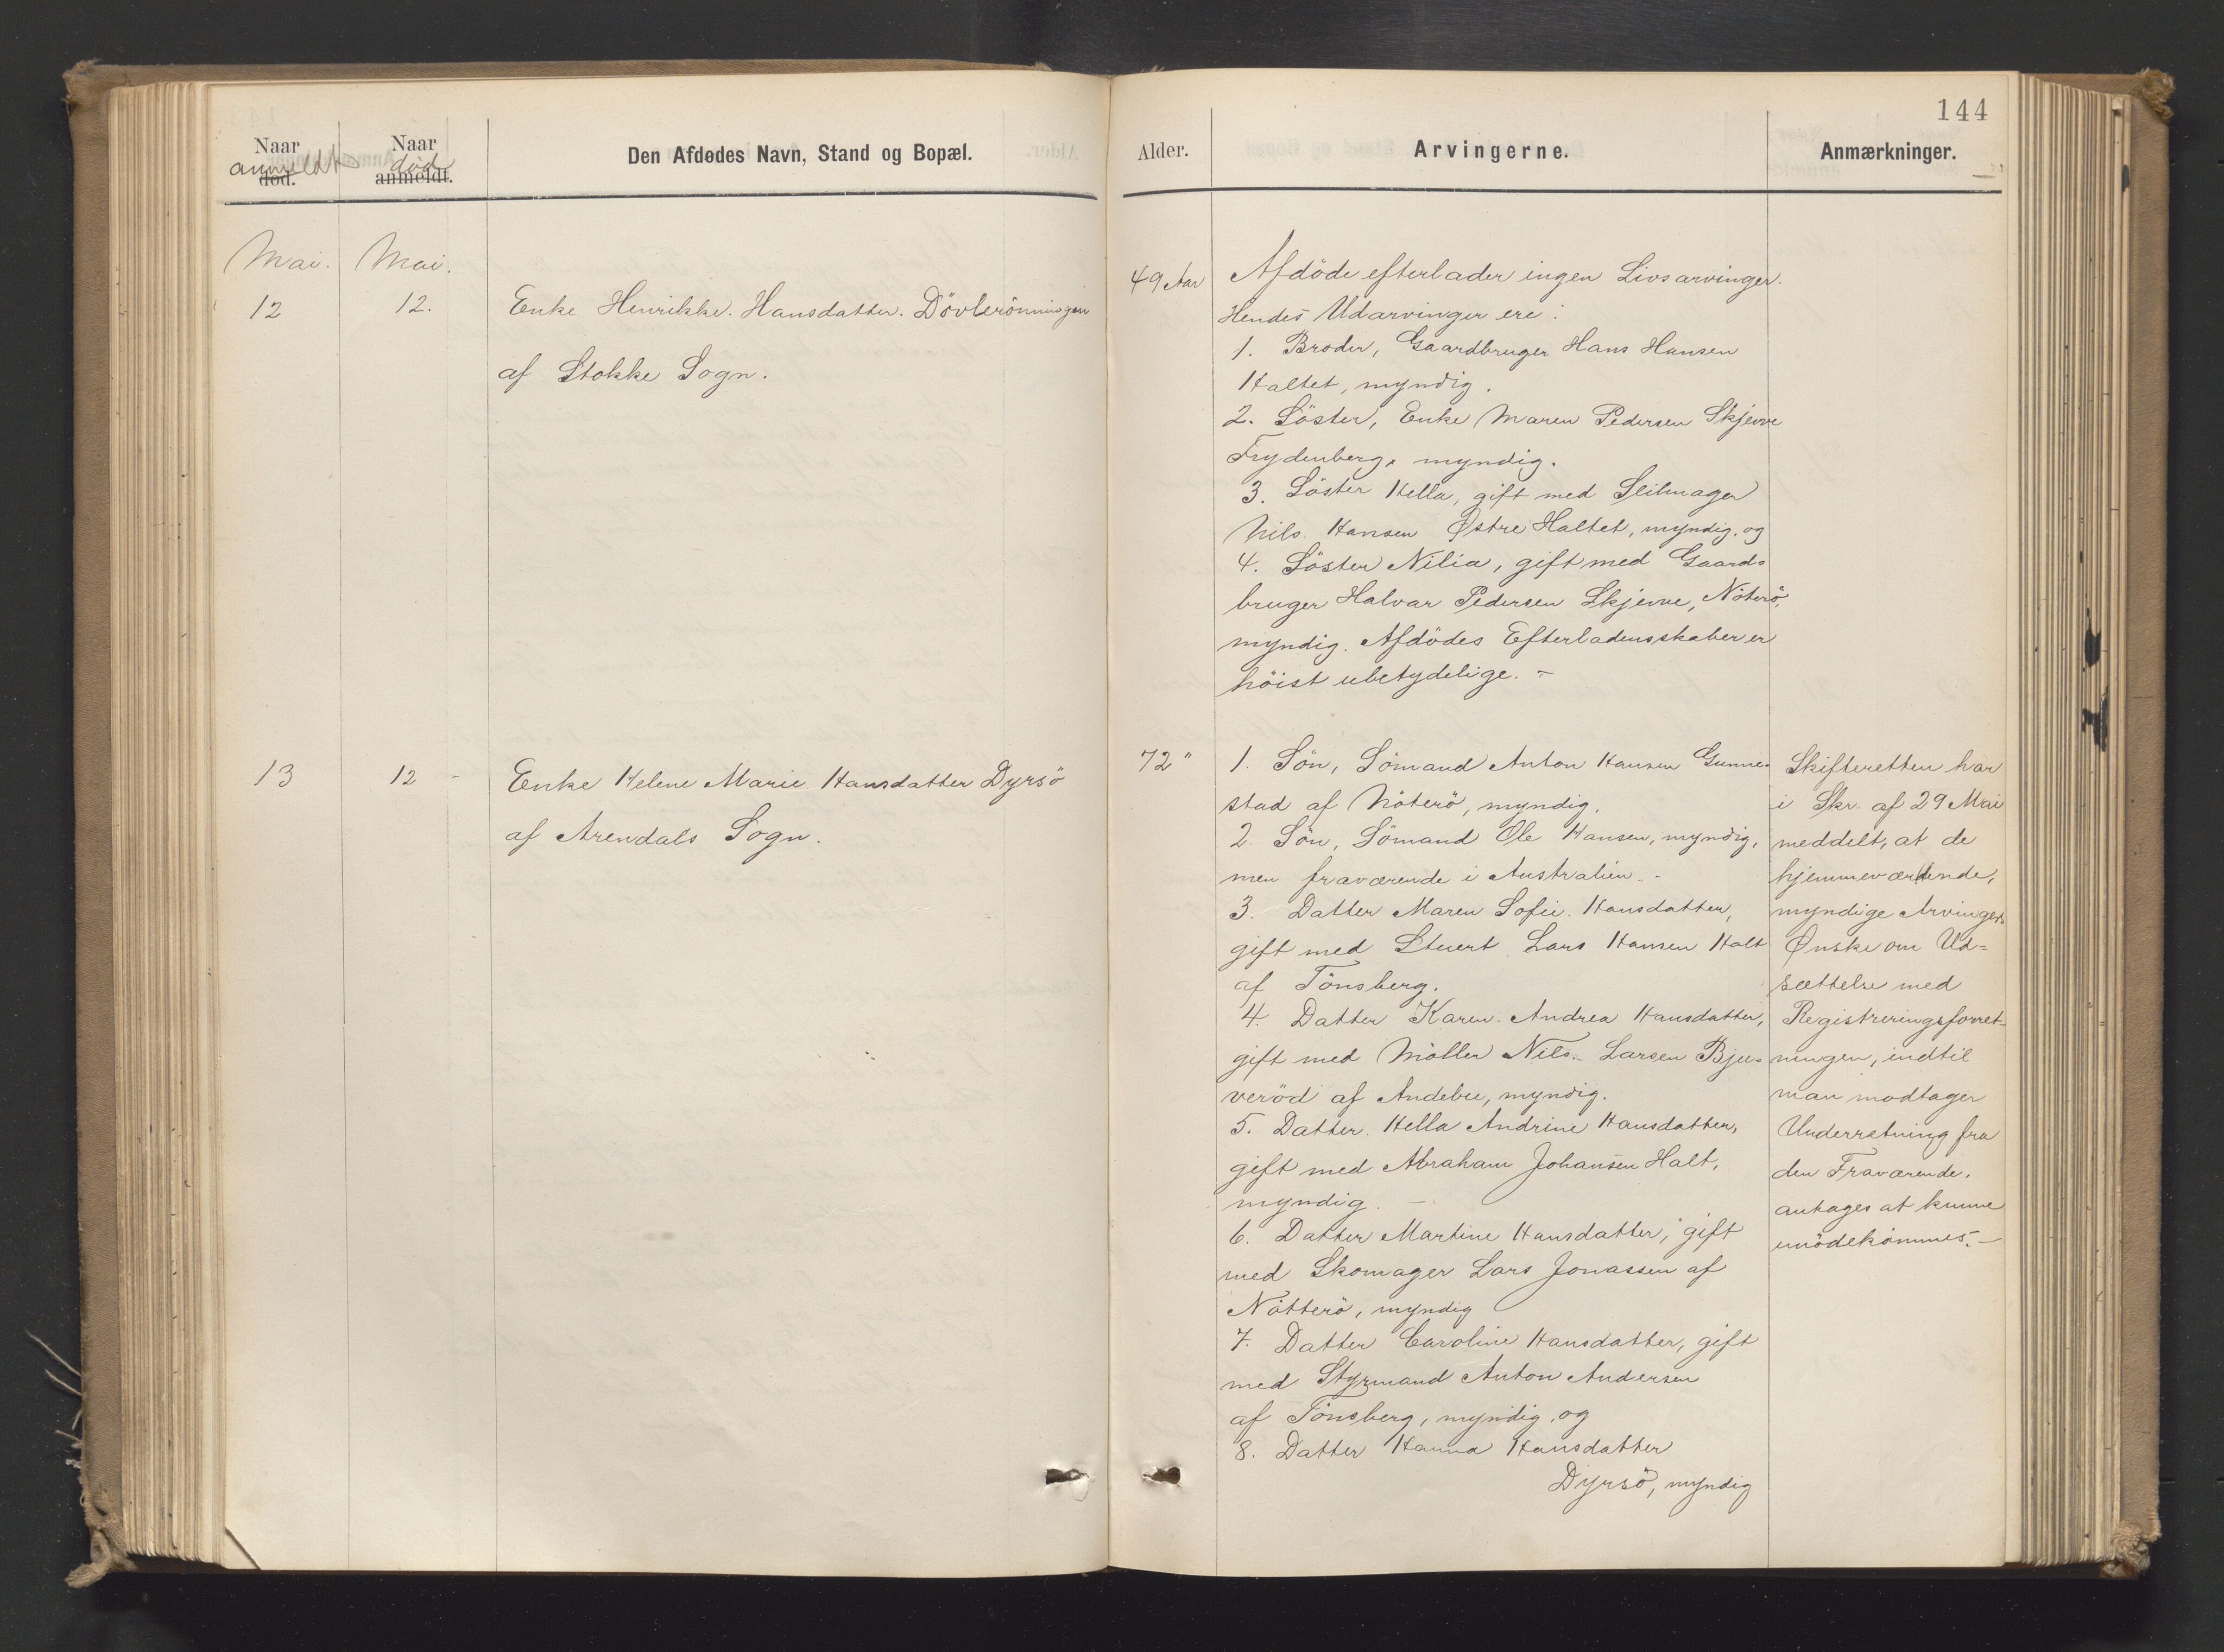 144
Naar
anmeldt
død.
Naar
død
anmeldt.
Den Afdødes Navn, Stand og Bopæl.
Alder.
Arvingerne.
Anmærkninger.
Mai. Mai.
12 12. Enke Henrikke Hansdatter. Dövlerönningen
af Stokke Sogn.
49 Aar
Afdöde efterlader ingen Livsarvinger.
Hendes Udarvinger ere:
1. Broder, Gaardbruger Hans Hansen
Haltet, myndig.
2. Söster, Enke Maren Pedersen Skjerve
Frydenberg, myndig.
3. Söster Hella, gift med Seilmager
Nils Hansen Østre Haltet, myndig. og
4. Söster Nilia, gift med Gaard-
bruger Halvar Pedersen Skjerve, Nöterö,
myndig. Afdödes Efterladensskaber er
höist ubetydelige. -
13 12 - Enke Helene Marie Hansdatter Dyrsö
af Arendals Sogn.
72 "
1. Sön, Sömand Anton Hansen Gunne-
stad af Nöterö, myndig.
2. Sön, Sömand Ole Hansen, myndig,
men fraværende i Australien. -
3. Datter Maren Sofie Hansdatter,
gift med Stuert Lars Hansen Halt
af Tönsberg.
4. Datter Karen Andrea Hansdatter,
gift med Möller Nils Larsen Bju-
veröd af Andebu, myndig.
5. Datter Hella Andrine Hansdatter,
gift med Abraham Johansen Halt,
myndig. -
6. Datter Martine Hansdatter, gift
med Skomager Lars Jonassen af
Nötterö, myndig
7. Datter Caroline Hansdatter, gift
med Styrmand Anton Andersen
af Tönsberg, myndig, og
8. Datter Hanna Hansdatter
Dyrsö, myndig
Skifteretten har
i Skr. af 29 Mai
meddelt, at de
hjemmeværende,
myndige Arvingers
Ønske om Ud-
sættelse med
Registreringsforret-
ningen, indtil
man modtager
Underretning fra
den Fraværende,
antages at kunne
imödekommes. -